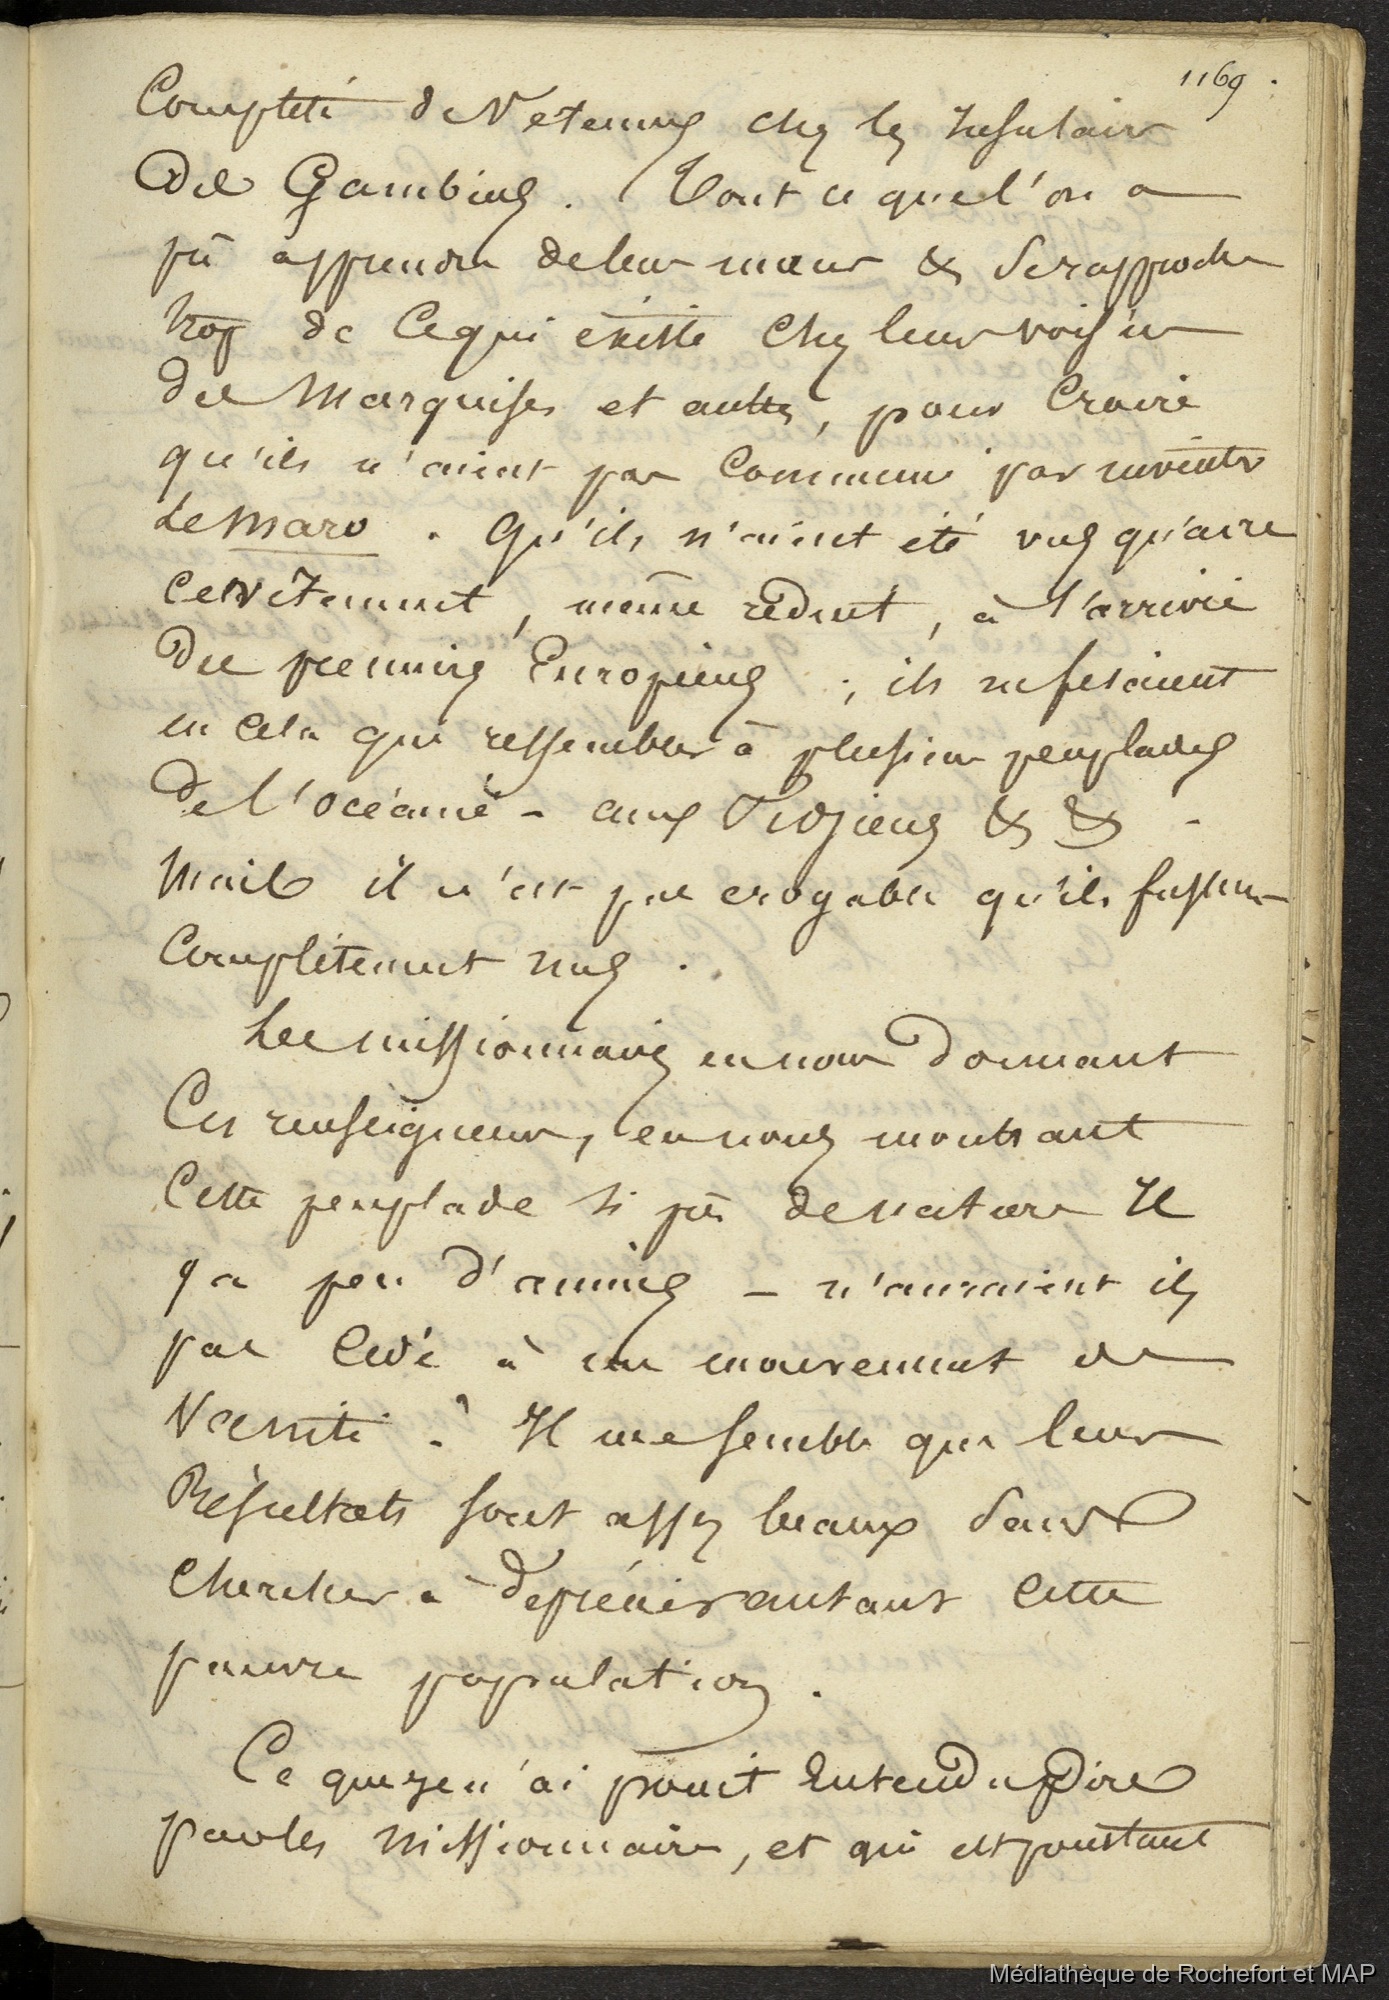 1169.
Compléte de Vetemens chez les Insulaires
des Gambiens. Tout ce que l'on a
pû apprendre de leur mœurs & se rapproche
trop de ce qui éxiste chez leurs voisins
des Marquises et autres, pour croire
qu'ils n'aient pas comme par
Le maro. Qu'ils n'aient été vus qu'avec
ce vêtement, même réduit, à l'arrivée
des premiers Européens ; ils ne fesaient
en cela que ressembler à plusieurs peuplades
de l'océanie - aux Vidjiens & & -
mais il n'est pas croyable qu'ils fussent
complètement nus.
Les missionnaires en nous donnant
ces renseigneurs, en nous montrant
cette peuplade si près de nature Il
y a peu d'années - n'auraient ils
pas cedé à un mouvement de
Vanité ? Il me semble que leurs
Résultats sont assez beaux sans
chercher à deprécier autant cette
pauvre population.
Ce que je n'ai point entendu dire
par les missionnaires, et qui est pourtant
Médiathèque de Rochefort et MAP